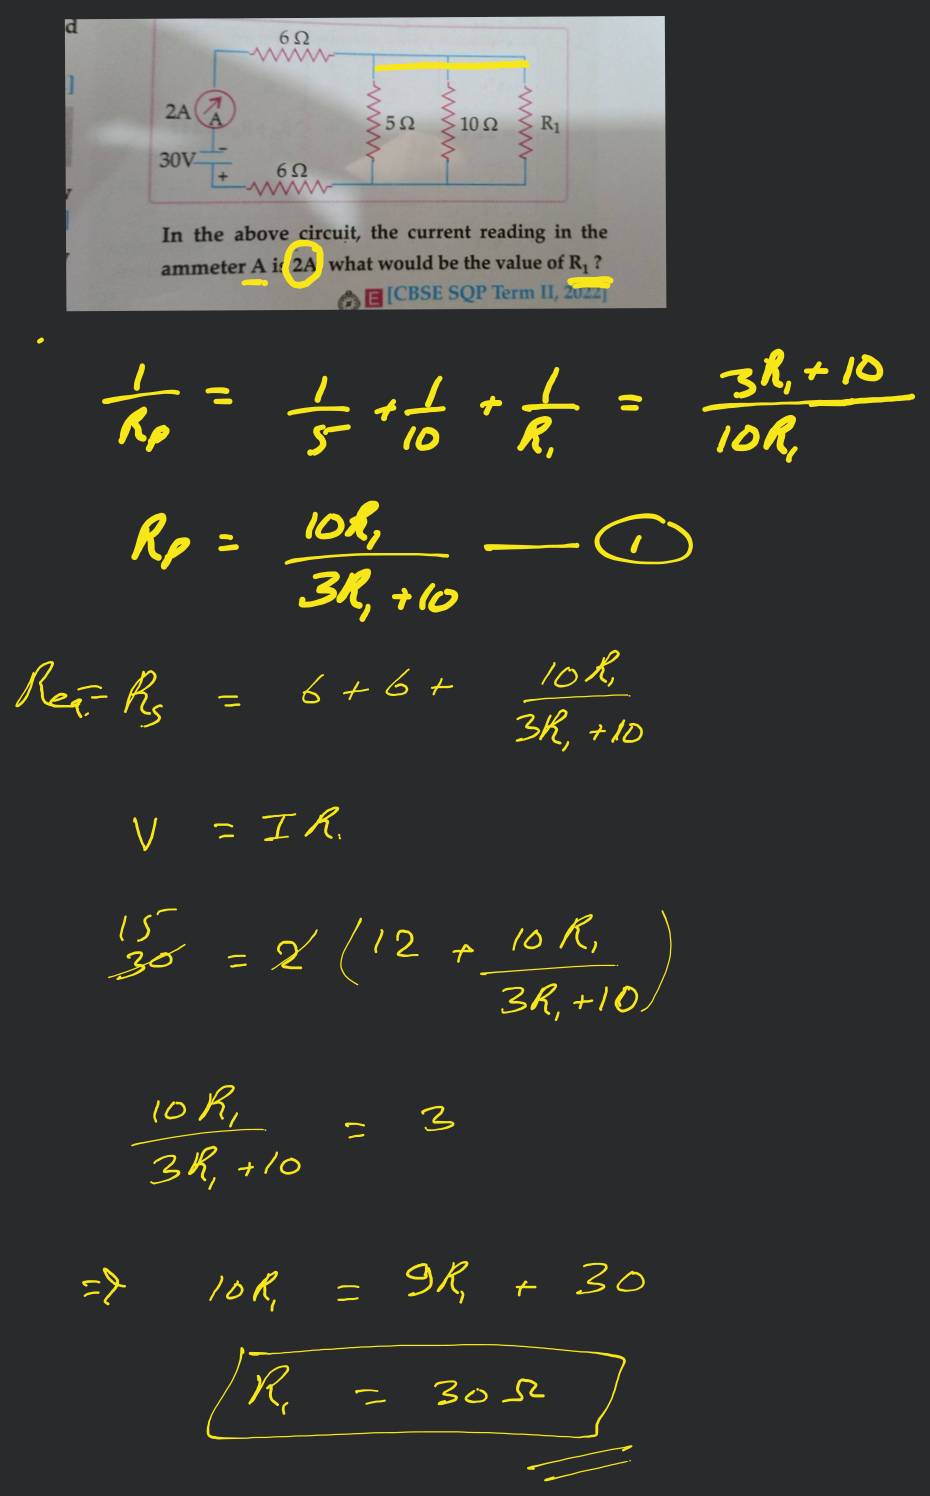 d
]
6Ω
2A
A
5Ω
10Ω
R₁
30V
-
+
6Ω
In the above circuit, the current reading in the
ammeter A is 2A what would be the value of R₁ ?
E [CBSE SQP Term II, 2022]
1/Rp = 1/5 + 1/10 + 1/R₁ = (3R₁ + 10)/(10R₁)
Rp = 10R₁/(3R₁ + 10) — ①
Req. = Rs = 6 + 6 + 10R₁/(3R₁ + 10)
V = IR.
15
30 = 2 (12 + 10R₁/(3R₁ + 10))
10R₁/(3R₁ + 10) = 3
⇒ 10R₁ = 9R₁ + 30
R₁ = 30Ω